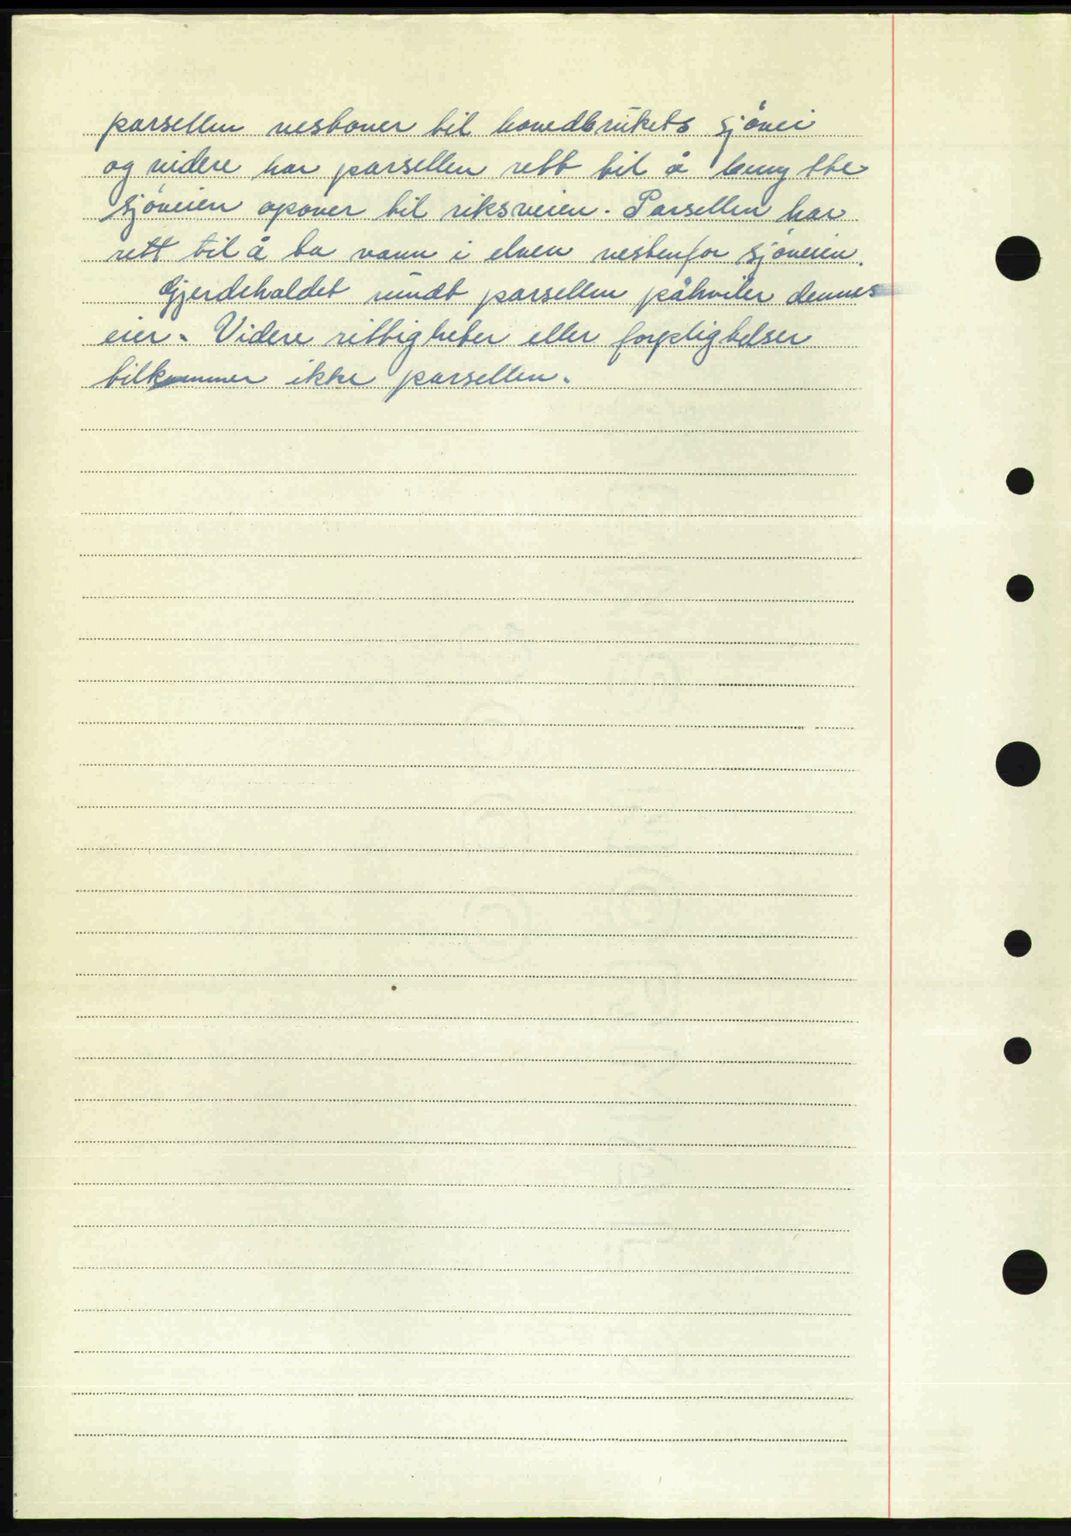 parsellen vestover til hovedbrukets sjövei
og videre har parsellen rett til å benytte
sjöveien opover til riksveien. Parsellen har
rett til å ta vann i elven vestenfor sjöveien.
Gjerdeholdet rundt parsellen påhviler dennes
eier. Videre rettigheter eller forpligtelser
tilkommer ikke parsellen.